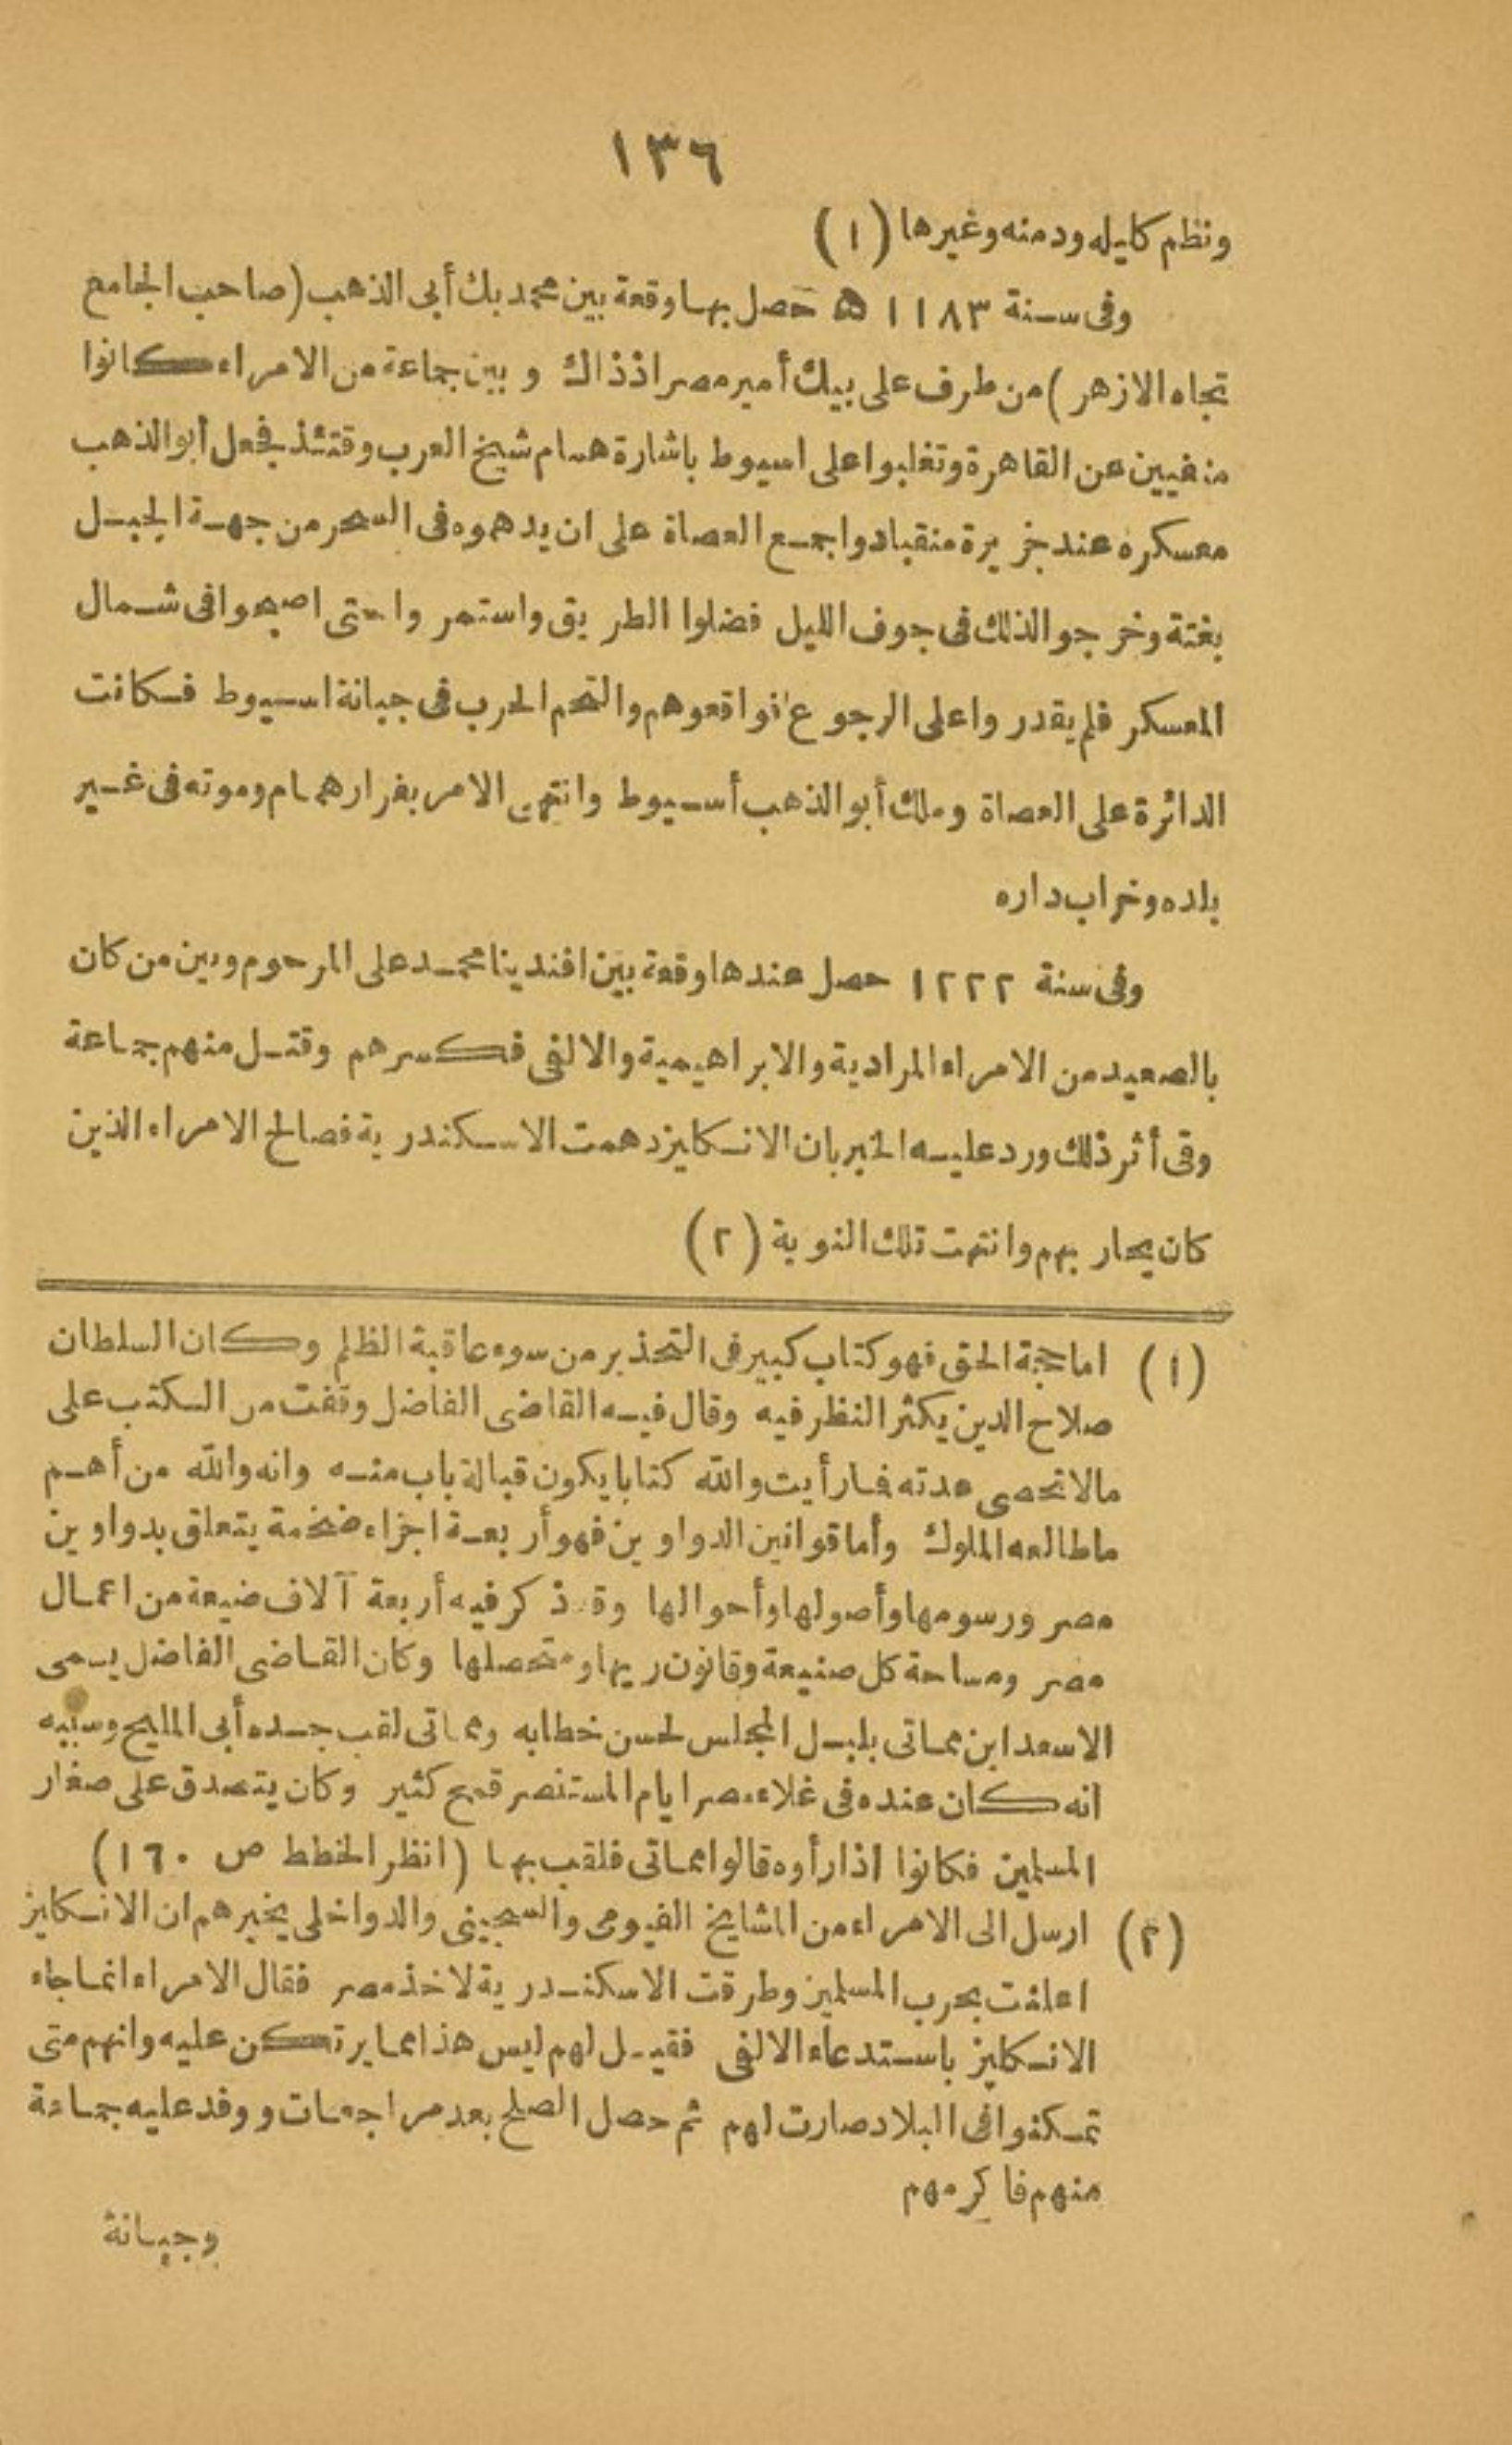 ١٣٦
ونظم كليله ودمنه وغيرها (١)
وفى سنة ١١٨٣ ه حصل بها وقعة بين محمد بك أبى الذهب (صاحب الجامع
تجاه الازهر) من طرف على بيك أمير مصر اذذاك وبين جماعة من الامراء كانوا
منفيين عن القاهرة وتغلبوا على اسيوط باشارة همام شيخ العرب وقتئذ فجعل أبو الذهب
معسكره عند جزيرة منقباد واجمع العصاة على ان يدهموه فى السحر من جهة الجبل
بغتة وخرجو الذلك فى جوف الليل فضلوا الطريق واستمروا حتى اصبحوا فى شمال
المعسكر فلم يقدروا على الرجوع فواقعوهم والتحم الحرب فى جبانة اسيوط فكانت
الدائرة على العصاة وملك أبو الذهب أسيوط وانتهى الامر بفرار همام وموته فى غير
بلده وخراب داره
وفى سنة ١٢٢٢ حصل عندها وقعة بين افندينا محمد على المرحوم وبين من كان
بالصعيد من الامراء المرادية والابراهيمية والالفى فكسرهم وقتل منهم جماعة
وفى أثر ذلك ورد عليه الخبر بان الانكليز دهمت الاسكندرية فصالح الامراء الذين
كان يحاربهم وانتهت تلك النوبة (٢)
(١) اما حجة الحق فهو كتاب كبير فى التحذير من سوء عاقبة الظلم وكان السلطان
صلاح الدين يكثر النظر فيه وقال فيه القاضى الفاضل وقفت من الكتب على
مالا تحصى عدته فما رأيت والله كتابا يكون قبالة باب منه وانه والله من أهم
ما طالعه الملوك وأما قوانين الدواوين فهو أربعة اجزاء ضخمة يتعلق بدواوين
مصر ورسومها وأصولها وأحوالها وقد ذكر فيه أربعة آلاف ضيعة من اعمال
مصر ومساحة كل صنيعة وقانون ريها ومتحصلها وكان القاضى الفاضل يسمى
الاسعد ابن مماتى بلبل المجلس لحسن خطابه ومماتى لقب جده أبى المليح وسببه
انه كان عنده فى غلاء مصر ايام المستنصر قمح كثير وكان يتصدق على صغار
المسلمين فكانوا اذا رأوه قالوا مماتى فلقب بها (انظر الخطط ص ١٦٠)
(٢) ارسل الى الامراء من المشايخ الفيومى والسجينى والدواخلى يخبرهم ان الانكليز
اعلنت بحرب المسلمين وطرقت الاسكندرية لاخذ مصر فقال الامراء انما جاء
الانكليز باستدعاء الالفى فقيل لهم ليس هذا مما يرتكن عليه وانهم متى
تمكنوا فى البلاد صارت لهم ثم حصل الصلح بعد مراجعات ووفد عليه جماعة
منهم فاكرمهم
وجبانة